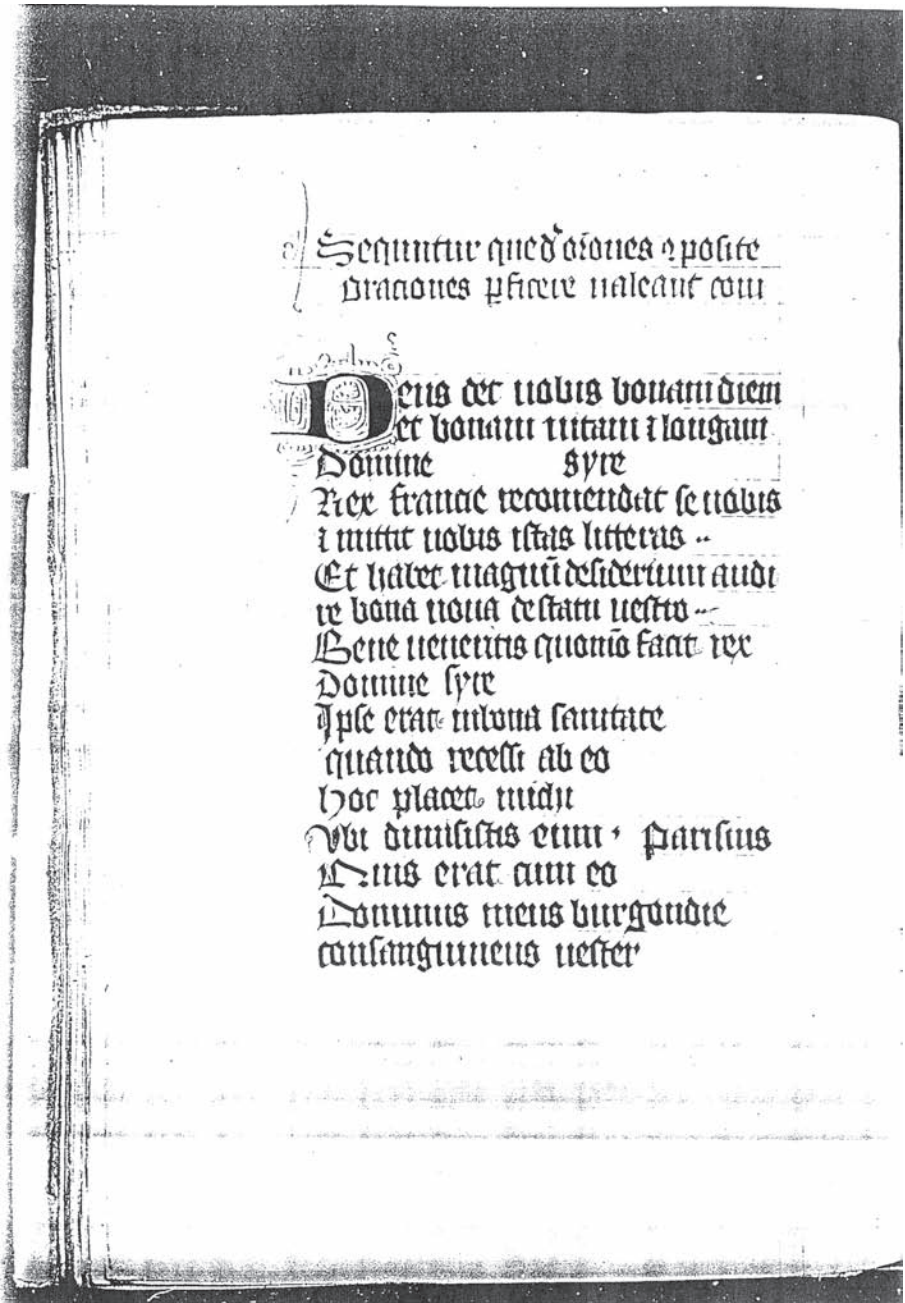 Sequuntur qued' or̄ones ꝯposite
oraciones ꝑficere ualeant com
Deus det uobis bonam diem
et bonam uitam ⁊ longam
Domine syre
Rex francie recomendat se uobis
⁊ mittit uobis istas litteras
Et habet magnū desiderium audi
re bona noua destatu uestro
Bene ueneritis quomō facit rex
Domine syre
Ipse erat inbona sanitate
quando recessi ab eo
Hoc placet michi
Vbi dimisistis eum · Parisius
Quis erat cum eo
Dominus meus burgondie
consanguineus uester